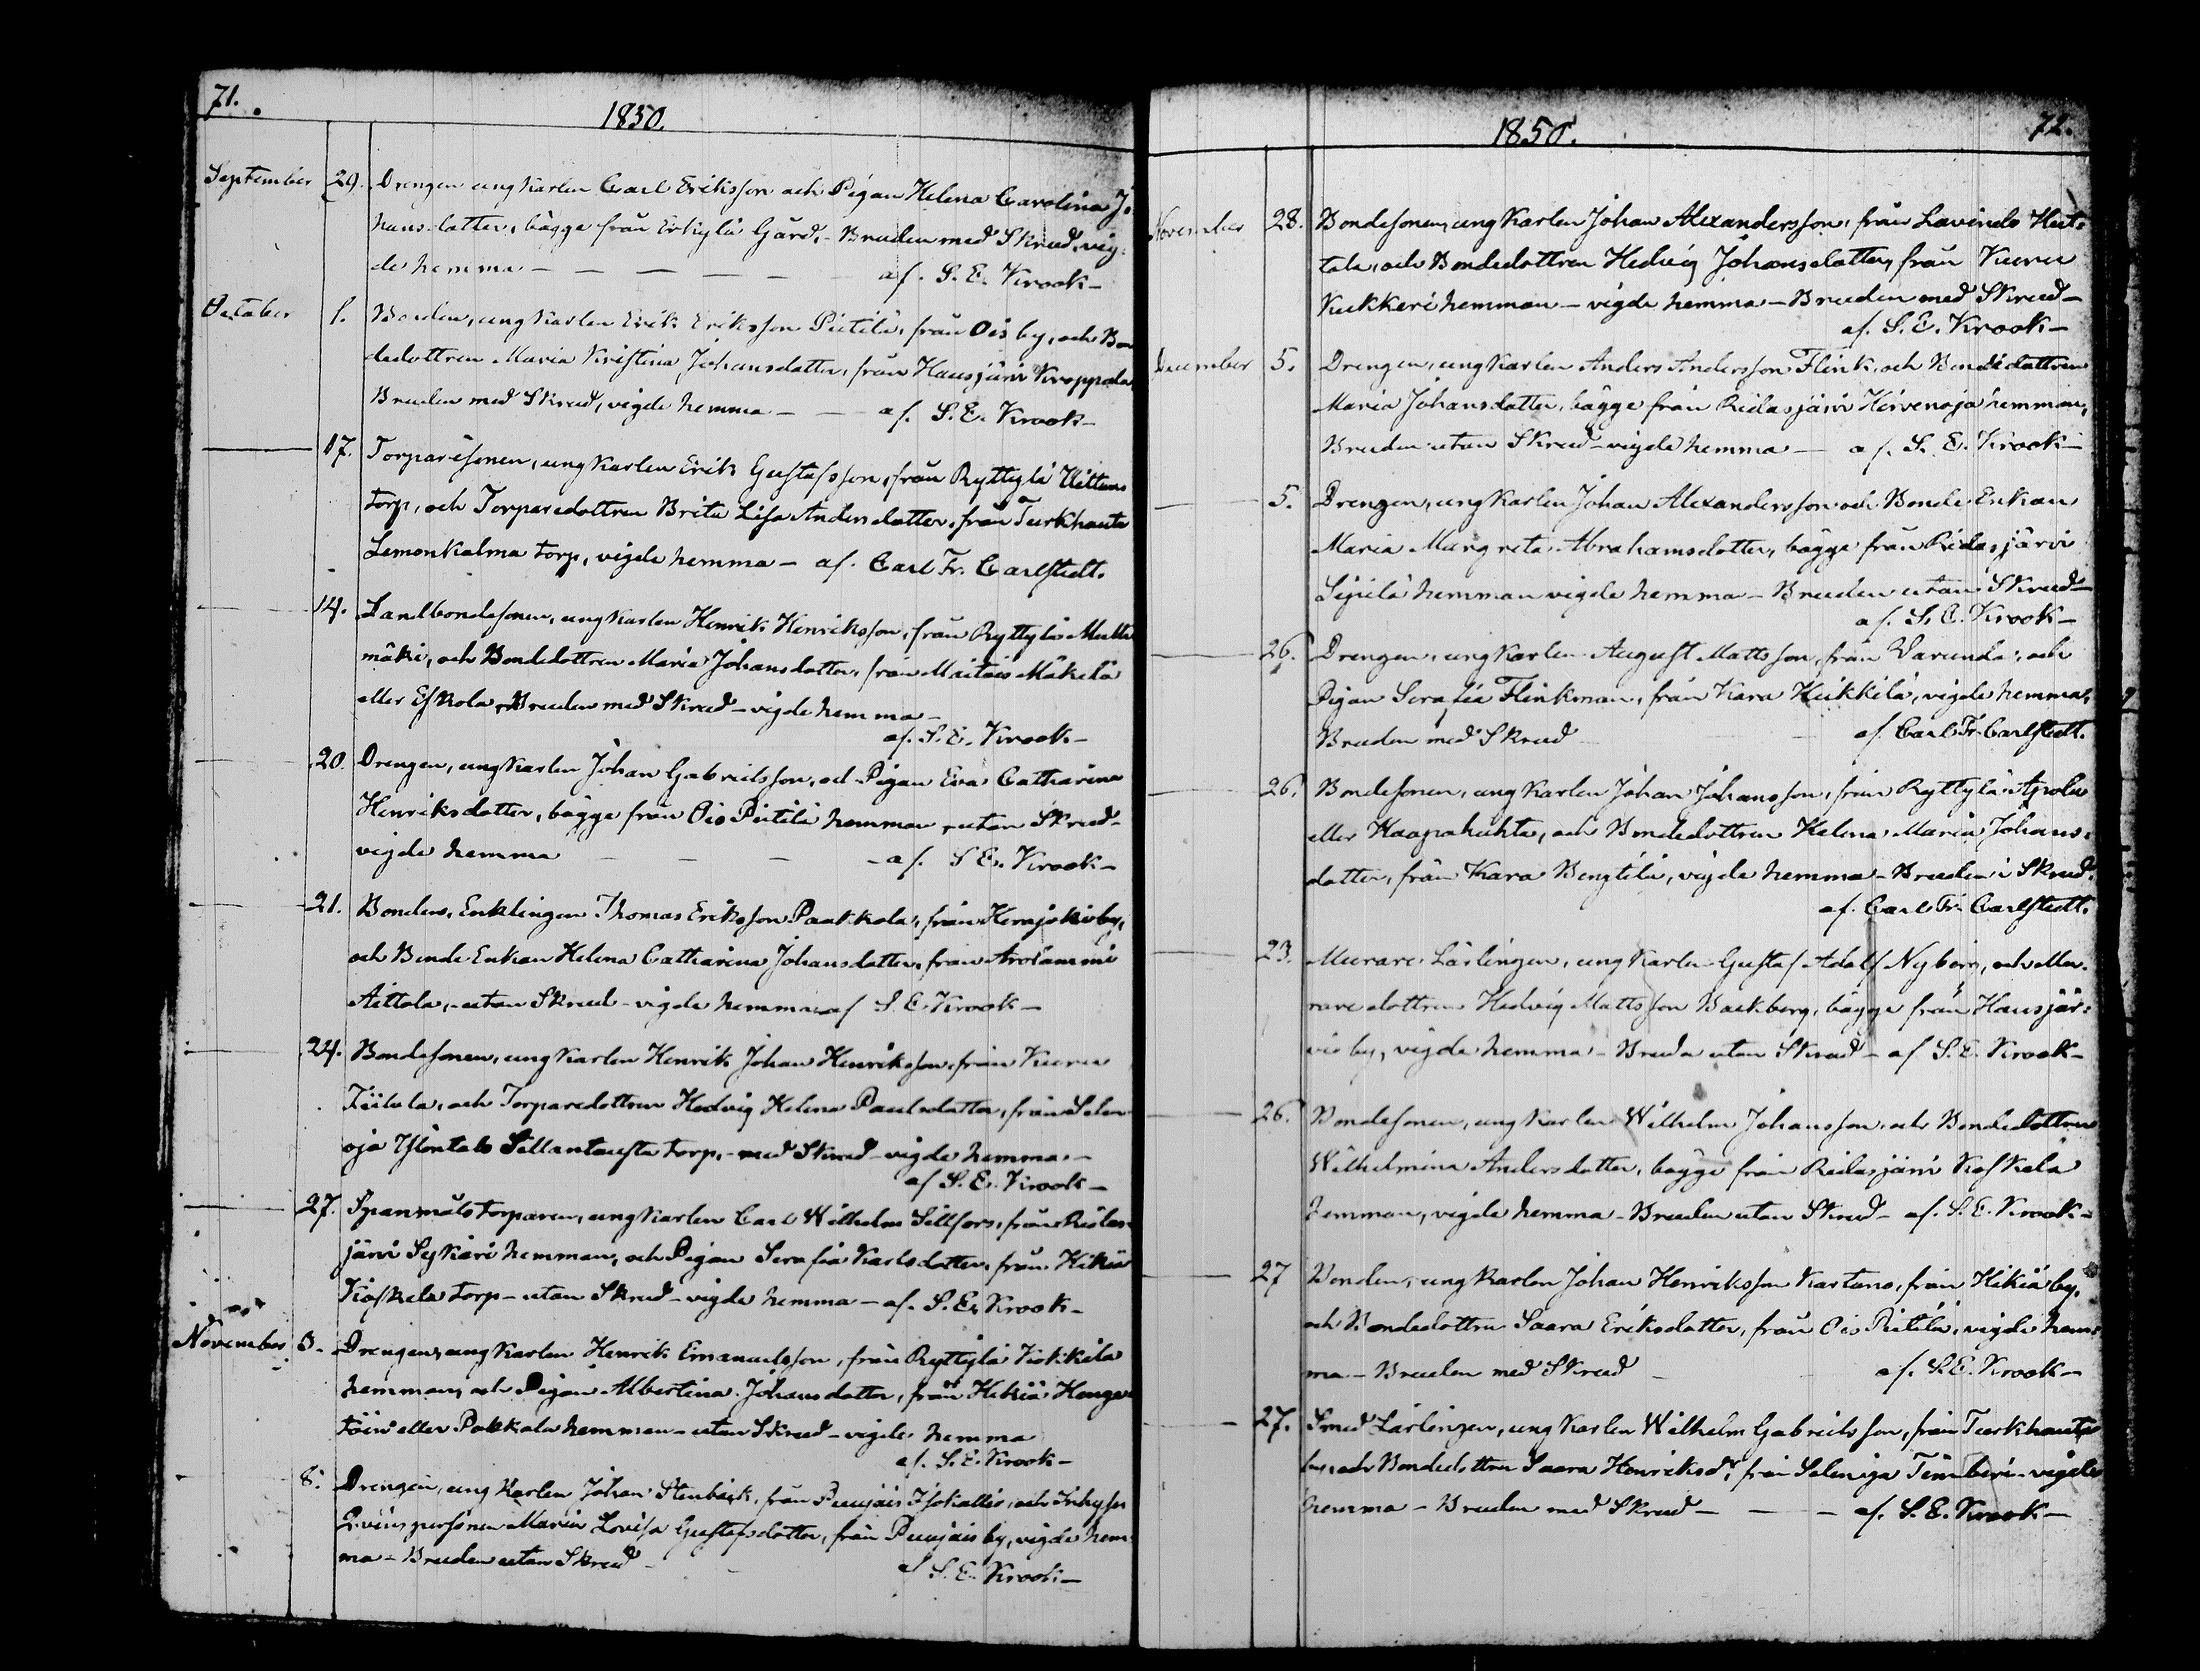 71.
1850.
September 29. Drengen ungkarlen Carl Eriksson och Pigan Helena Carolina Jo
hansdotter, bägge från Erkylä Gård, - Bruden med Skrud, vig
de hemma — — — — — af. S. E. Krook —
October 1. Bonden, ungkarlen Erik Eriksson Pietilä, från Ois by, och Bon
dedottren Maria Kristina Johansdotter, från Hausjärvi Kroppola
Bruden med Skrud, vigde hemma — — af. S. E. Krook —
— 17. Torparesonen, ungkarlen Erik Gustafsson, från Ryttylä Uittam
torp, och Torparedottren Brita Lisa Andersdotter, från Turkhauta
Lemonkalma torp, vigde hemma — af. Carl Fr. Carlstedt.
— 14. Landbondesonen, ungkarlen Henrik Henriksson, från Ryttylä Multi
mäki, och Bondedottren Maria Johansdotter, från Maitois Mäkelä
eller Eskola, Bruden med Skrud — vigde hemma —
af. S. E. Krook —
— 20. Drengen, ungkarlen Johan Gabrielsson, och Pigan Eva Catharina
Henriksdotter, bägge från Ois Pietilä hemman, utan Skrud —
vigde hemma — — — — af. S. E. Krook —
— 21. Bonden, Enklingen Thomas Eriksson Paakkola, från Kernjokis by,
och Bonde Enkan Helena Catharina Johansdotter, från Arolammi
Aittola, - utan Skrud - vigde hemma af S. E. Krook —
— 24. Bondesonen, ungkarlen Henrik Johan Henriksson, från Kuru
Tiilola, och Torparedottren Hedvig Helena Paulsdotter, från Selen
oja Ylöntalo Sillantausta torp, - med Skrud - vigde hemma. —
af S. E. Krook —
— 27. Spanmåls torparen, ungkarlen Carl Wilhelm Sillfors, från Ridas
järvi Sykäri hemman, och Pigan Serafia Karlsdotter, från Hikiä
Kiöskelä torp — utan Skrud — vigde hemma — af. S. E. Krook —
November 3. Drengen, ungkarlen Henrik Emanuelsson, från Ryttylä Kiekkilä
hemman, och Pigan Albertina Johansdotter, från Hikiä Honga
töin eller Pakkala hemman — utan Skrud — vigde hemma
af. S. E. Krook —
8. Drengen, ungkarlen Johan Stenbäck, från Puujais Isokallio, och Inhyses
Qvinspersonen Maria Lovisa Gustafsdotter, från Puujais by, vigde hem
ma — Bruden utan Skrud — — af S. E. Krook —
1850.
72.
November 28. Bondesonen, ungkarlen Johan Alexandersson, från Lavinds Hut:
tala, och Bondedottren Hedvig Johansdotter, från Kuru
Kukkeri hemman — vigde hemma — Bruden med Skrud —
af. S. E. Krook —
December 5. Drengen, ungkarlen Anders Andersson Flink, och Bondedottren
Maria Johansdotter, bägge från Ridasjärvi Hirvenoja hemman,
Bruden utan Skrud — vigde hemma — af. S. E. Krook —
— 5. Drengen, ungkarlen Johan Alexandersson och Bonde Enkan
Maria Margreta Abrahamsdotter, bägge från Ridasjärvi
Sipilä hemman vigde hemma — Bruden utan Skrud —
af. S. E. Krook —
— 26. Drengen, ungkarlen August Mattsson, från Varunda, och
Pigan Serafia Flinkman, från Kara Heikkilä, vigde hemma,
Bruden med Skrud — — af. Carl Fr. Carlstedt.
— 26. Bondesonen, ungkarlen Johan Johansson, från Ryttylä
eller Haapahuhta, och Bondedottren Helena Maria Johans:
dotter, från Kara Bengtilä, vigde hemma — Bruden i Skrud.
af. Carl Fr. Carlstedt.
— 23. Murare Lärlingen, ungkarlen Gustaf Adolf Nyberg, och Mu:
rare dottren Hedvig Mattsson Backberg, bägge från Hausjär:
vis by, vigde hemma — Bruden utan Skrud — af S. E. Krook —
— 26. Bondesonen, ungkarlen Wilhelm Johansson, och Bondedottren
Wilhelmina Andersdotter, bägge från Ridasjärvi Koskela
hemman, vigde hemma — Bruden utan Skrud — af. S. E. Krook —
— 27 Bonden, ungkarlen Johan Henriksson Kartano, från Hikiä by,
och Bondedottren Saara Eriksdotter, från Ois Pietilä, vigde hem:
ma — Bruden med Skrud — af. S. E. Krook —
— 27. Smed Lärlingen, ungkarlen Wilhelm Gabrielsson, från Turkhauta
by, och Bondedottren Saara Henriksdr, från Selenoja Timberi — vigde
hemma — Bruden med Skrud — — — af. S. E. Krook —